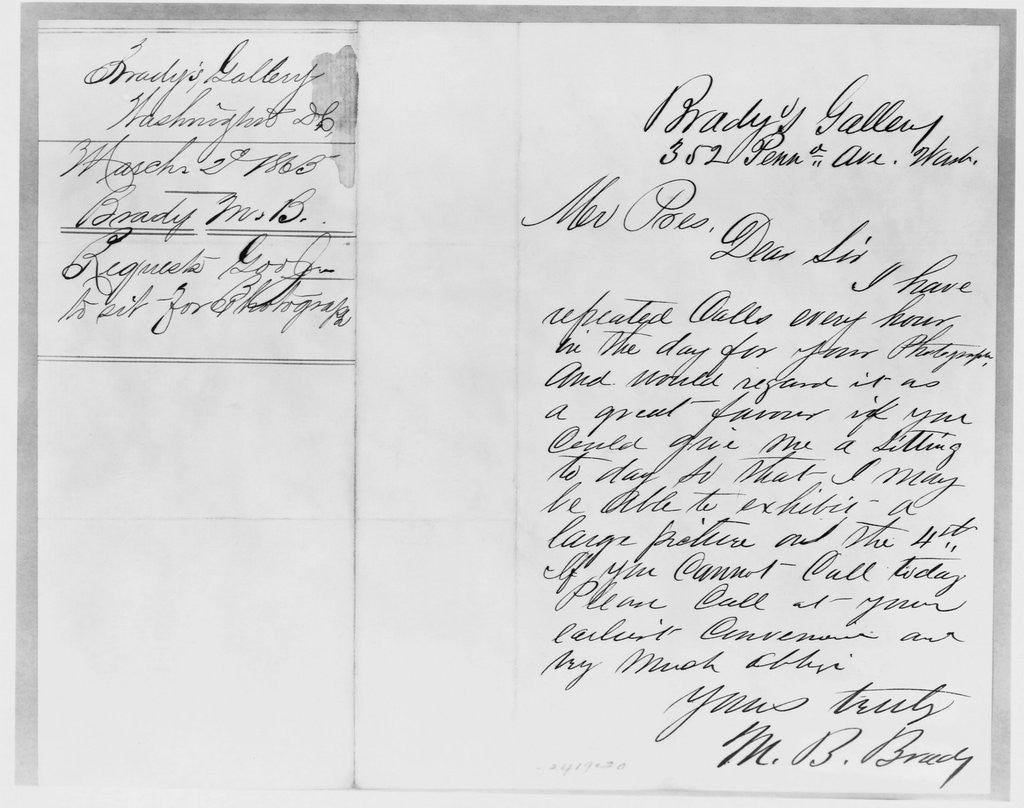 Brady's Gallery
Washington DC,
March 2d 1865
Brady M. B.
Requests Gov Jn
to sit for Photograph
Brady's Gallery
352 Penna Ave. Wash.
Mr Pres.
Dear Sir
I have
repeated Calls every hour
in the day for your Photograph,
And would regard it as
a great favour if you
Could give me a Sitting
to day so that I may
be able to exhibit a
large picture on the 4th.
If you Cannot Call today
Please Call at your
earliest Convenience and
very Much oblige
Yours truly
M. B. Brady
241920